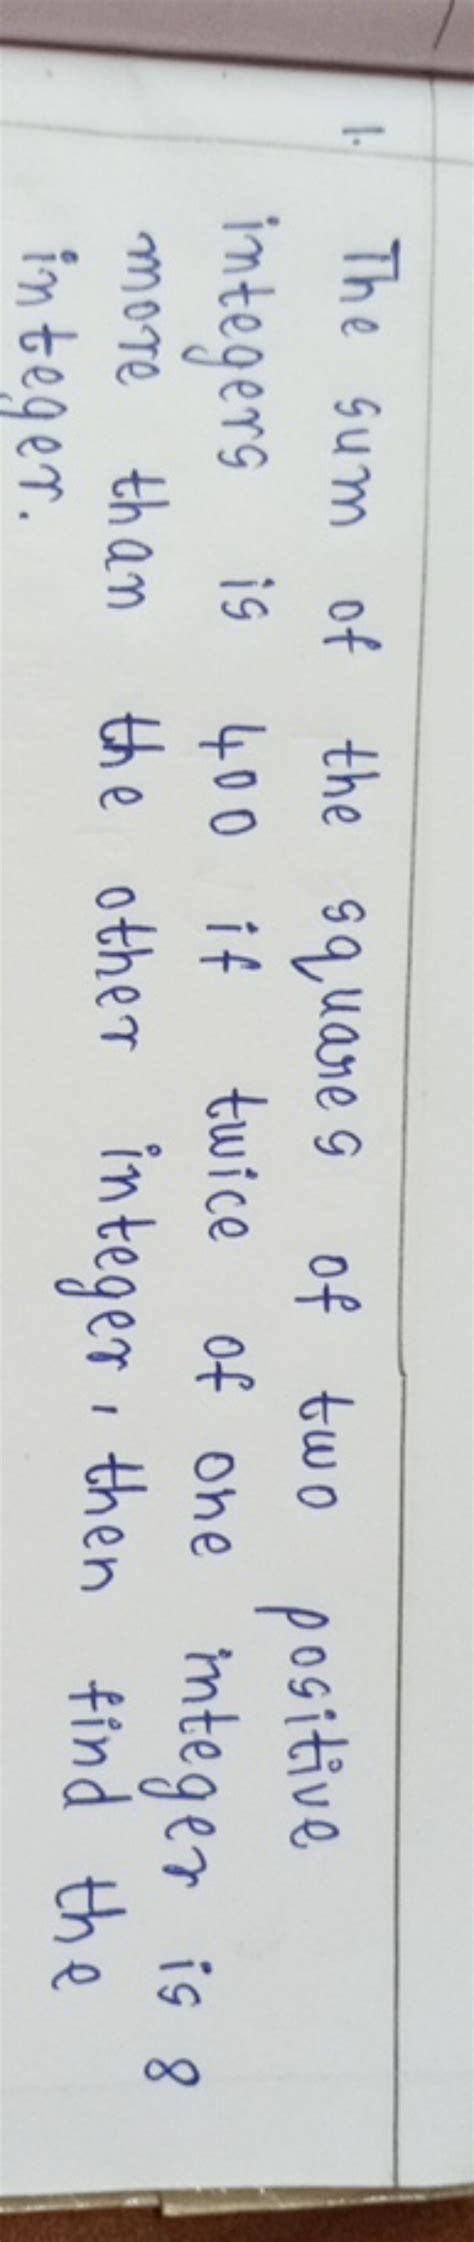 1. The sum of the squares of two positive
integers is 400 if twice of one integer is 8
more than the other integer, then find the
integer.